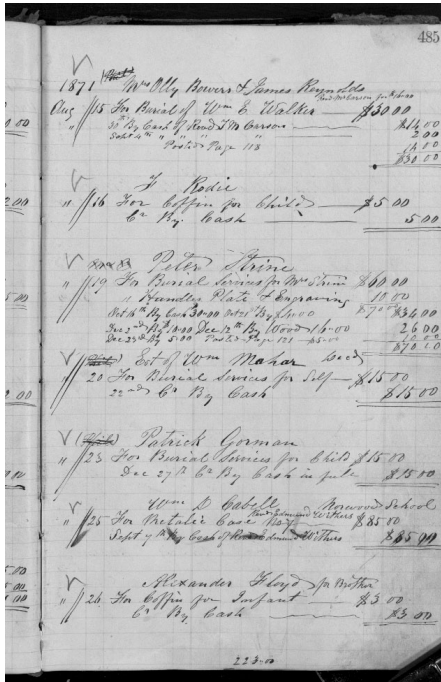 485
1871 Mrs Olly Bowers & James Reynolds
Aug 15 For Burial of Wm E. Walker — $30 00
30th By Cash of Revd J M Carson — $14 00
Sept 4th " " " " — 2 00
Posted Page 118 14 00
$30 00
F Rodie
" 16 For Coffin for Child — $5 00
Cr By Cash — 5 00
Peter Strine
" 19 For Burial Services for Mrs Strine $60 00
" Handles Plate & Engraving 10 00
$70 00
Oct 16th By Cash 30-00 Oct 21st By $4-00 $34 00
Dec 2nd By $10-00 Dec 12th By Wood 16-00 26 00
Dec 23d By 5-00 Posted Page 121 - $5-00 10 00
$70 00
Est of Wm Mahar Decd
" 20 For Burial Services for Self — $15 00
22nd Cr By Cash $15 00
Patrick Gorman
" 23 For Burial Services for Child $15 00
Dec 27th Cr By Cash in full $15 00
Wm D Cabell Norwood School
Revd Edmund Withers
" 25 For Metalic Case — $85 00
Sept 7th By Cash of Revd Edmund Withers $85 00
Alexander Floyd for Brother
" 26 For Coffin for Infant — $3 00
Cr By Cash — $3 00
223-00